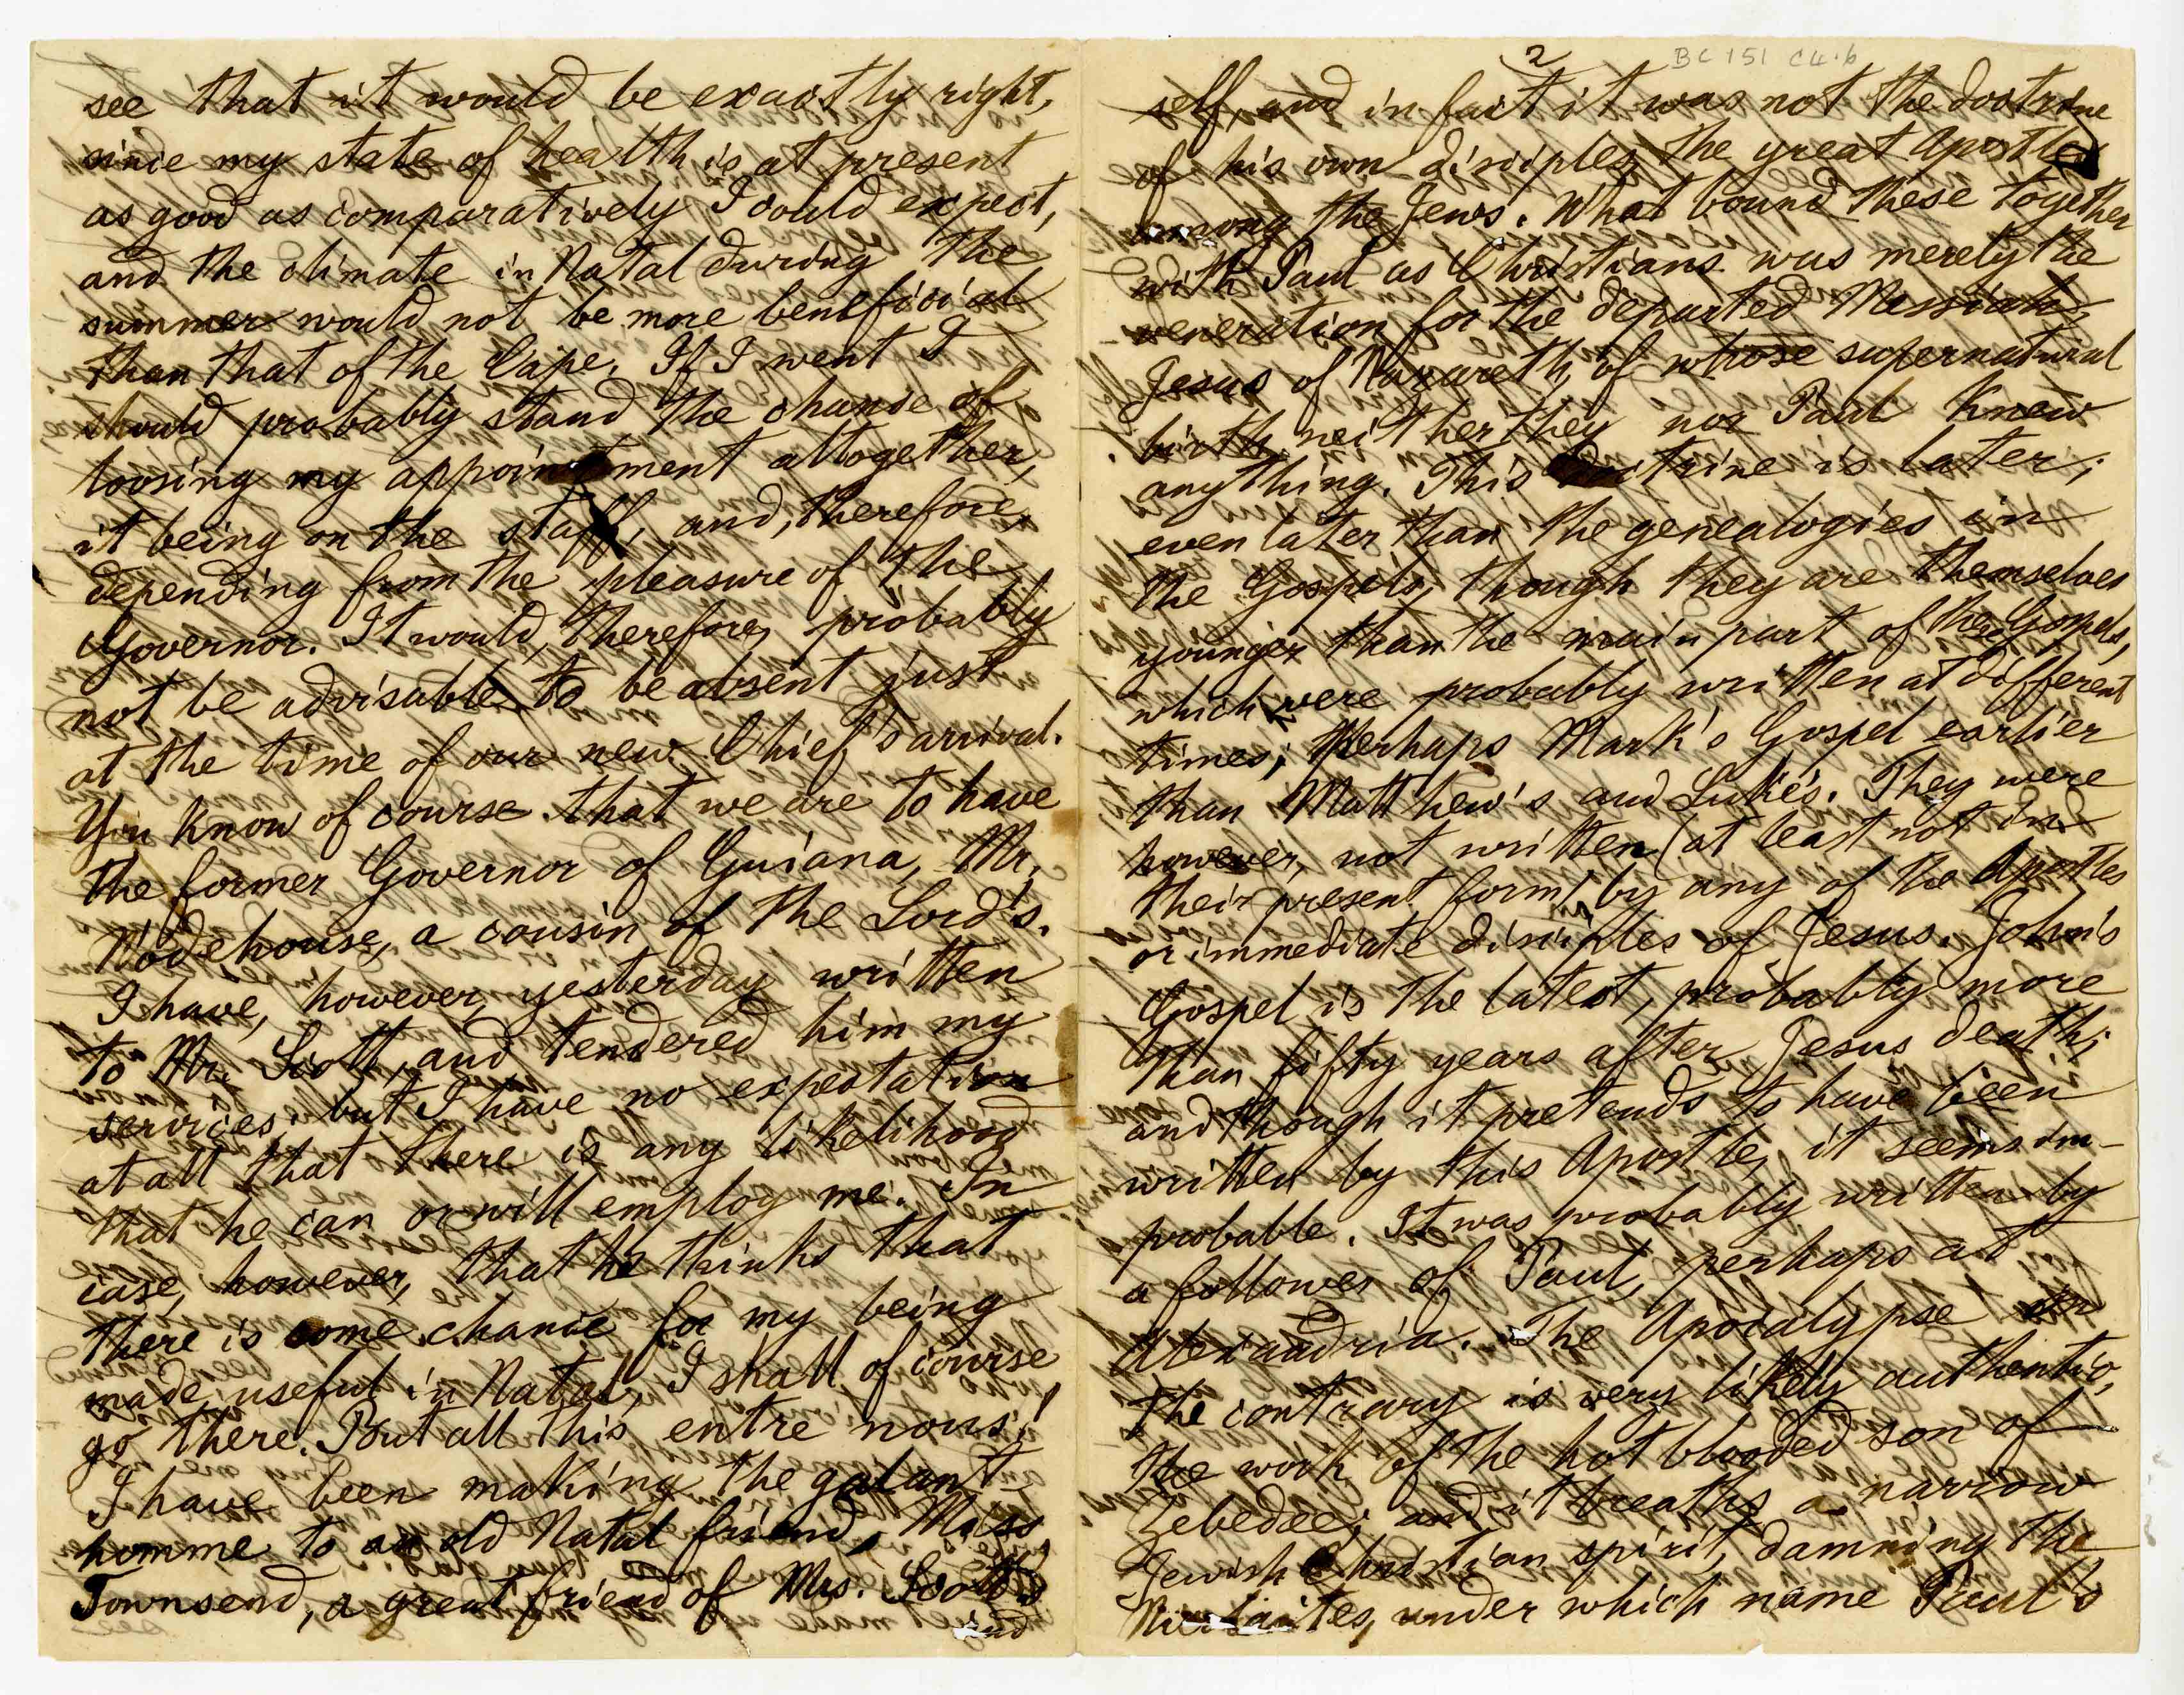 see that it would be exactly right,
since my state of health is at present
as good as comparatively I could expect,
and the climate in Natal during the
summer would not be more beneficial
than that of the Cape. If I went I
should probably stand the chance of
loosing my appointment altogether,
it being on the staff, and, therefore,
depending from the pleasure of the
Governor. It would, therefore, probably
not be advisable to be absent just
at the time of our new Chief's arrival.
You know of course that we are to have
the former Governor of Guiana, Mr.
Wodehouse, a cousin of the Lord's.
I have, however, yesterday written
to Mr. Scott, and tendered him my
services; but I have no expectation
at all that there is any likelihood
that he can or will employ me. In
case, however, that he thinks that
there is some chance for my being
made useful in Natal, I shall of course
go there. But all this entre nous!
I have been making the galant
homme to an old Natal friend, Miss
Townsend, a great friend of Mrs. Scott's
and
2
BC 151 C4.6
self, and in fact it was not the doctrine
of his own disciples, the great Apostles
among the Jews. What bound these together
with Paul as Christians was merely the
veneration for the departed Messiah,
Jesus of Nazareth, of whose supernatural
birth neither they nor Paul knew
anything. This doctrine is later;
even later than the genealogies in
the Gospels, though they are themselves
younger than the main part of these Gospels,
which were probably written at different
times; Perhaps Mark's Gospel earlier
than Matthew's and Luke's. They were
however, not written (at least not in
their present form) by any of the Apostles
or immediate disciples of Jesus. John's
Gospel is the latest, probably more
than fifty years after Jesus death;
and though it pretends to have been
written by this Apostle, it seems im-
probable. It was probably written by
a follower of Paul, perhaps at
Alexandria. The Apocalypse on
the contrary is very likely authentic,
the work of the hot blooded son of
Zebedee; and it breaths a narrow
Jewish Christian spirit, damning the
Nicolaites, under which name Paul's